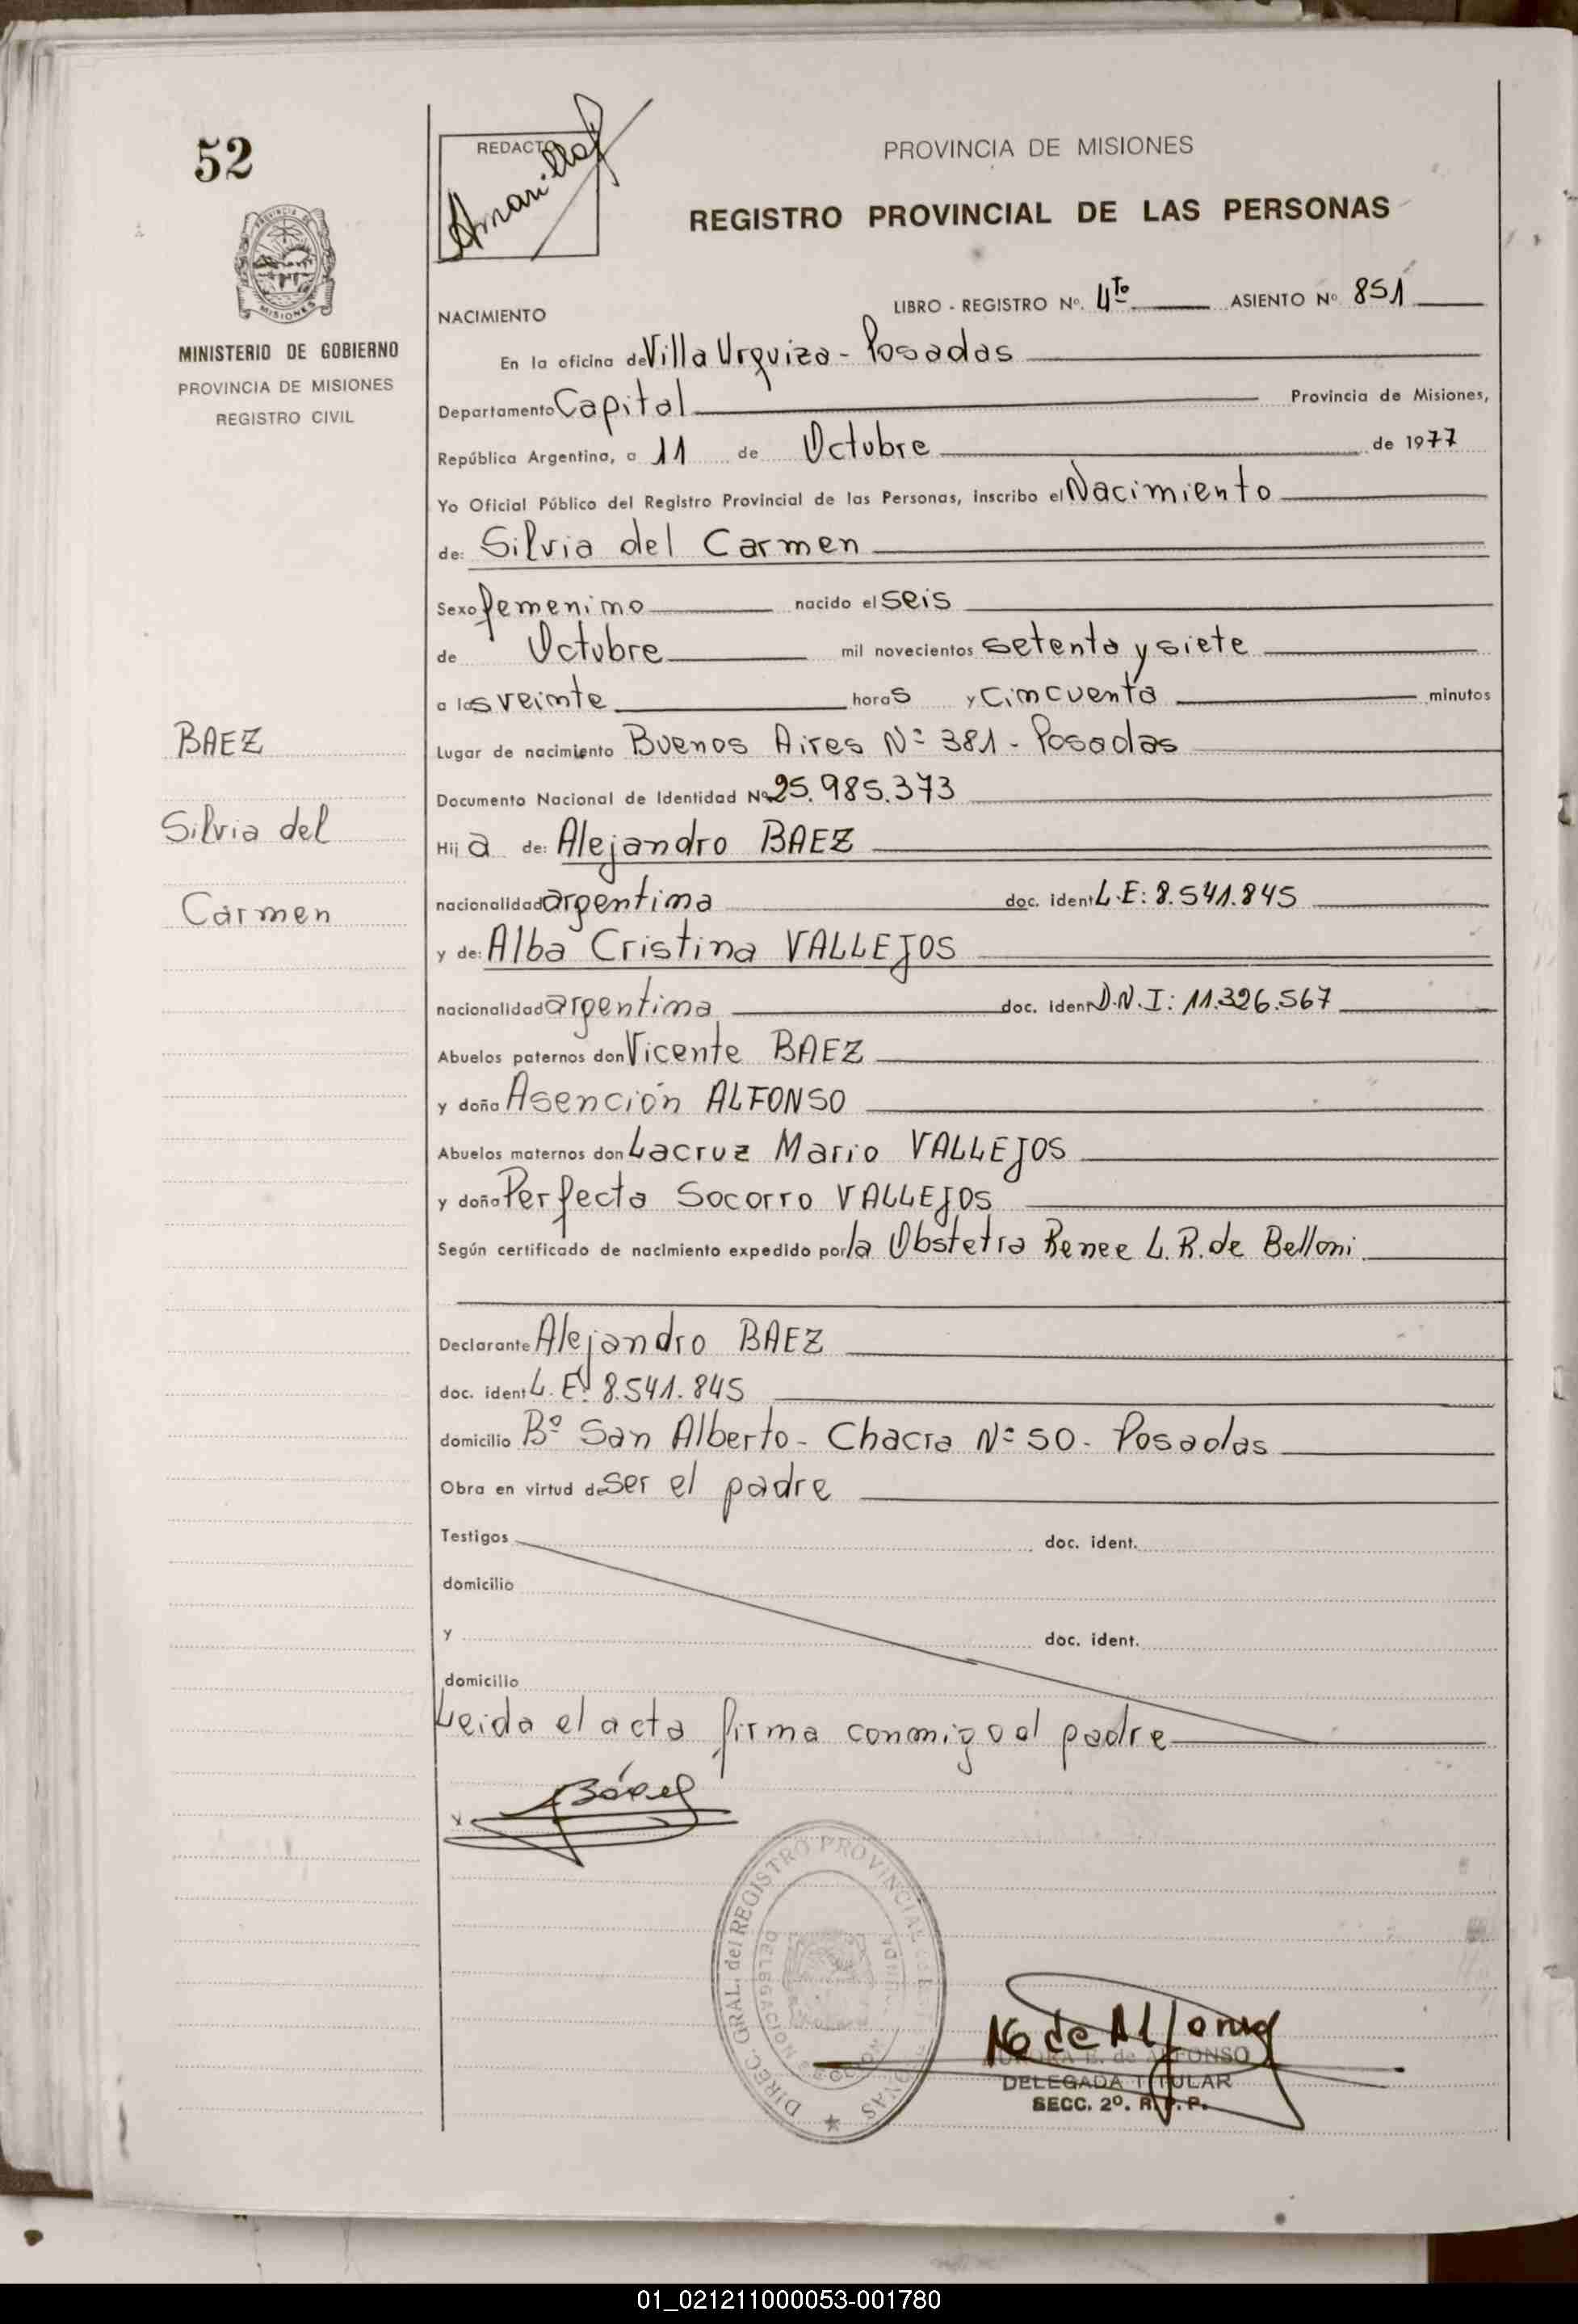 52
MINISTERIO DE GOBIERNO
PROVINCIA DE MISIONES
REGISTRO CIVIL
BAEZ
Silvia del
Carmen
REDACTO
Amarilla
PROVINCIA DE MISIONES
REGISTRO PROVINCIAL DE LAS PERSONAS
NACIMIENTO
LIBRO - REGISTRO Nº. 4to ASIENTO Nº 851
En la oficina de Villa Urquiza - Posadas
Departamento Capital Provincia de Misiones,
República Argentina, a 11 de Octubre de 1977
Yo Oficial Público del Registro Provincial de las Personas, inscribo el Nacimiento
de: Silvia del Carmen
Sexo femenino nacido el seis
de Octubre mil novecientos setenta y siete
a las veinte horas y cincuenta minutos
Lugar de nacimiento Buenos Aires Nº 381 - Posadas
Documento Nacional de Identidad Nº 25.985.373
Hija de: Alejandro BAEZ
nacionalidad argentina doc. ident L.E: 8.541.845
y de: Alba Cristina VALLEJOS
nacionalidad argentina doc. ident D.N.I: 11.326.567
Abuelos paternos don Vicente BAEZ
y doña Asención ALFONSO
Abuelos maternos don Lacruz Mario VALLEJOS
y doña Perfecta Socorro VALLEJOS
Según certificado de nacimiento expedido por la Obstetra Renee L. R. de Belloni
Declarante Alejandro BAEZ
doc. ident L. E: 8.541.845
domicilio Bº San Alberto - Chacra Nº 50 - Posadas
Obra en virtud de ser el padre
Testigos doc. ident.
domicilio
y doc. ident.
domicilio
Leida el acta firma conmigo el padre
x Báez
DIREC. GRAL. del REGISTRO PROVINCIAL de las PERSONAS
DELEGACION SECCION
N de Alfonso
AURORA E. de ALFONSO
DELEGADA TITULAR
SECC. 2º. R. P. P.
01_021211000053-001780